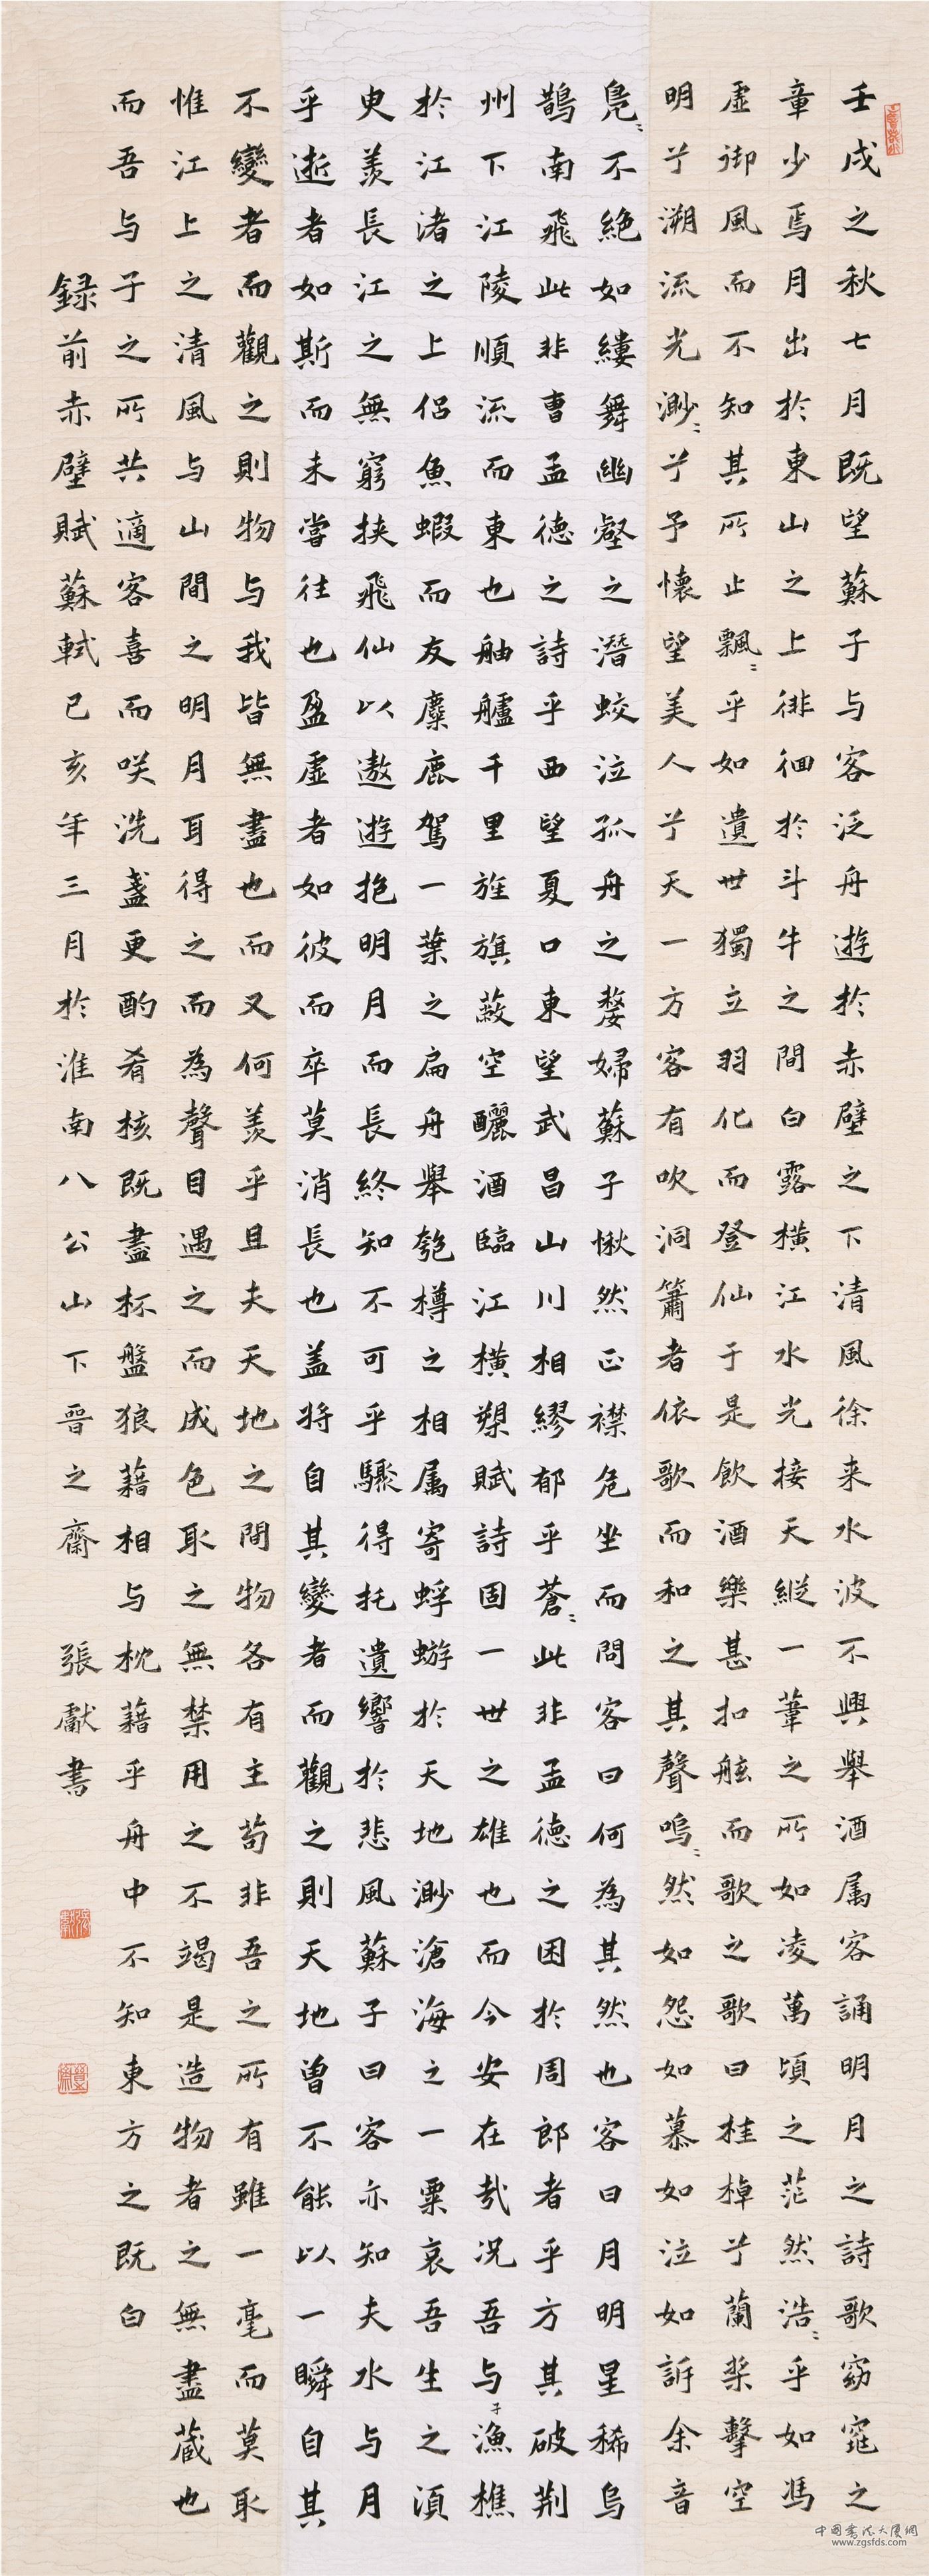 壬戌之秋七月既望蘇子与客泛舟遊於赤壁之下清風徐来水波不興舉酒属客誦明月之詩歌窈窕之
章少焉月出於東山之上徘徊於斗牛之間白露橫江水光接天縱一葦之所如凌萬頃之茫然浩〻乎如馮
虛御風而不知其所止飄〻乎如遺世獨立羽化而登仙于是飲酒樂甚扣舷而歌之歌曰桂棹兮蘭槳擊空
明兮溯流光渺〻兮予懷望美人兮天一方客有吹洞簫者依歌而和之其聲嗚〻然如怨如慕如泣如訴余音
裊〻不絕如縷舞幽壑之潛蛟泣孤舟之嫠婦蘇子愀然正襟危坐而問客曰何為其然也客曰月明星稀烏
鵲南飛此非曹孟德之詩乎西望夏口東望武昌山川相繆郁乎蒼〻此非孟德之困於周郎者乎方其破荆
州下江陵順流而東也舳艫千里旌旗蔽空釃酒臨江橫槊賦詩固一世之雄也而今安在哉況吾与子漁樵
於江渚之上侣魚蝦而友麋鹿駕一葉之扁舟舉匏樽之相属寄蜉蝣於天地渺滄海之一粟哀吾生之須
臾羨長江之無窮挾飛仙以遨遊抱明月而長終知不可乎驟得托遺響於悲風蘇子曰客亦知夫水与月
乎逝者如斯而未嘗往也盈虛者如彼而卒莫消長也盖将自其變者而觀之則天地曾不能以一瞬自其
不變者而觀之則物与我皆無盡也而又何羨乎且夫天地之間物各有主苟非吾之所有雖一毫而莫取
惟江上之清風与山間之明月耳得之而為聲目遇之而成色取之無禁用之不竭是造物者之無盡藏也
而吾与子之所共適客喜而咲洗盞更酌肴核既盡杯盤狼藉相与枕藉乎舟中不知東方之既白
録前赤壁賦蘇軾己亥年三月於淮南八公山下晋之齋 張獻書
中国書法大厦網
www.zgsfds.com